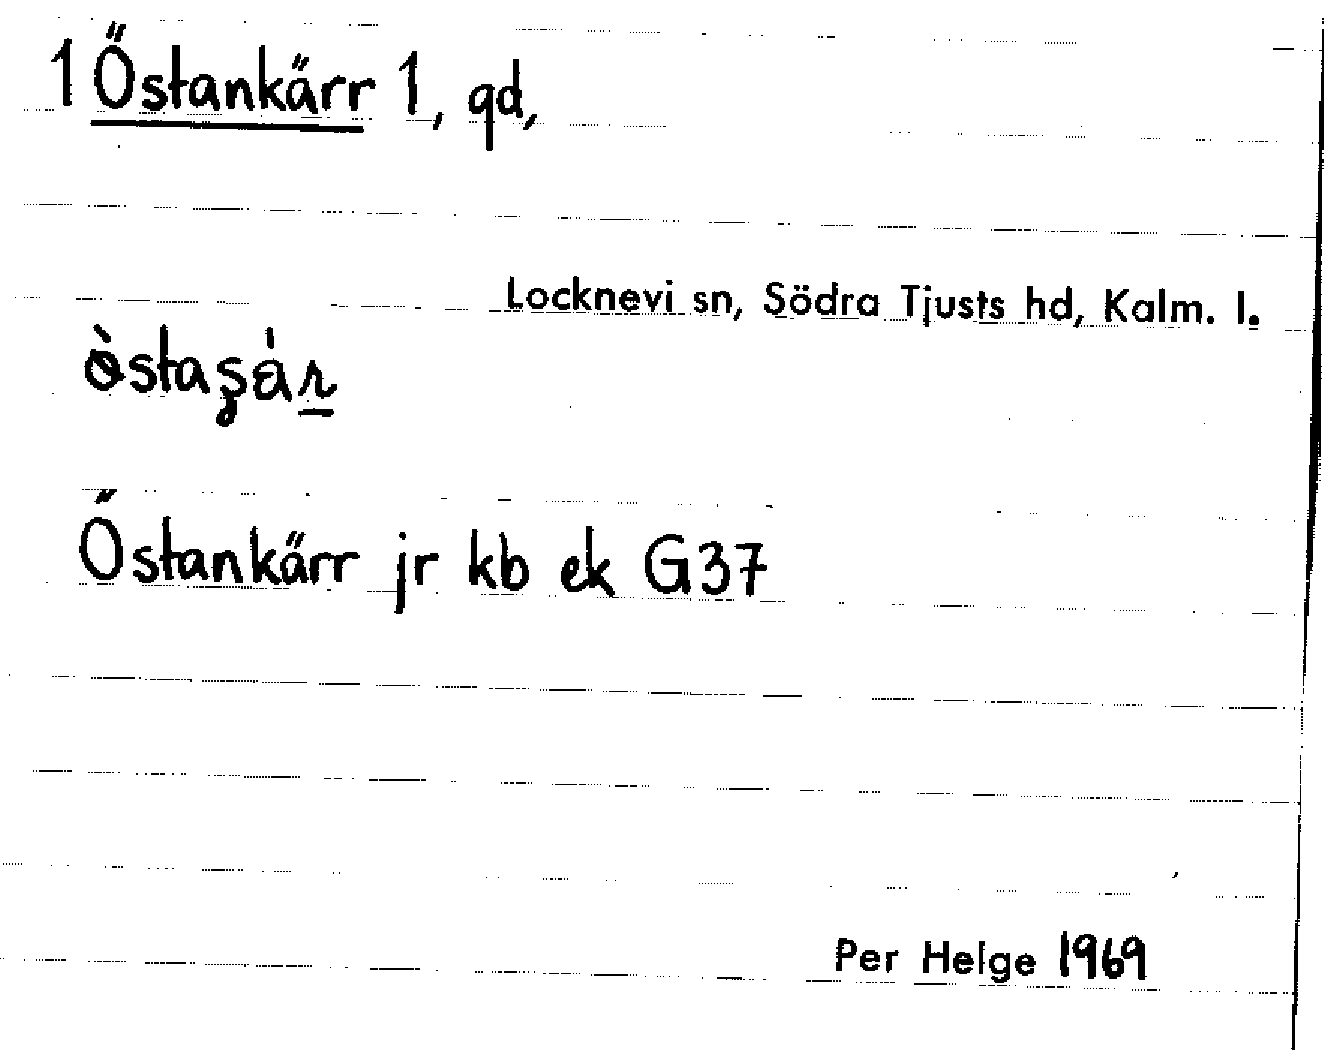 1 Östankärr 1, gd,
Locknevi sn, Södra Tjusts hd, Kalm. l.
Östankärr jr kb ek G37
Per Helge 1969